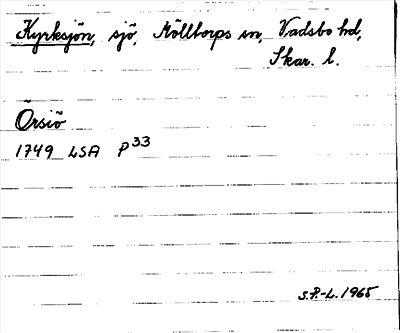 Kyrksjön, sjö, Mölltorps sn, Vadsbo hd,
Skar. l.
Örsiö
1749 LSA P33
S.P.-L. 1965